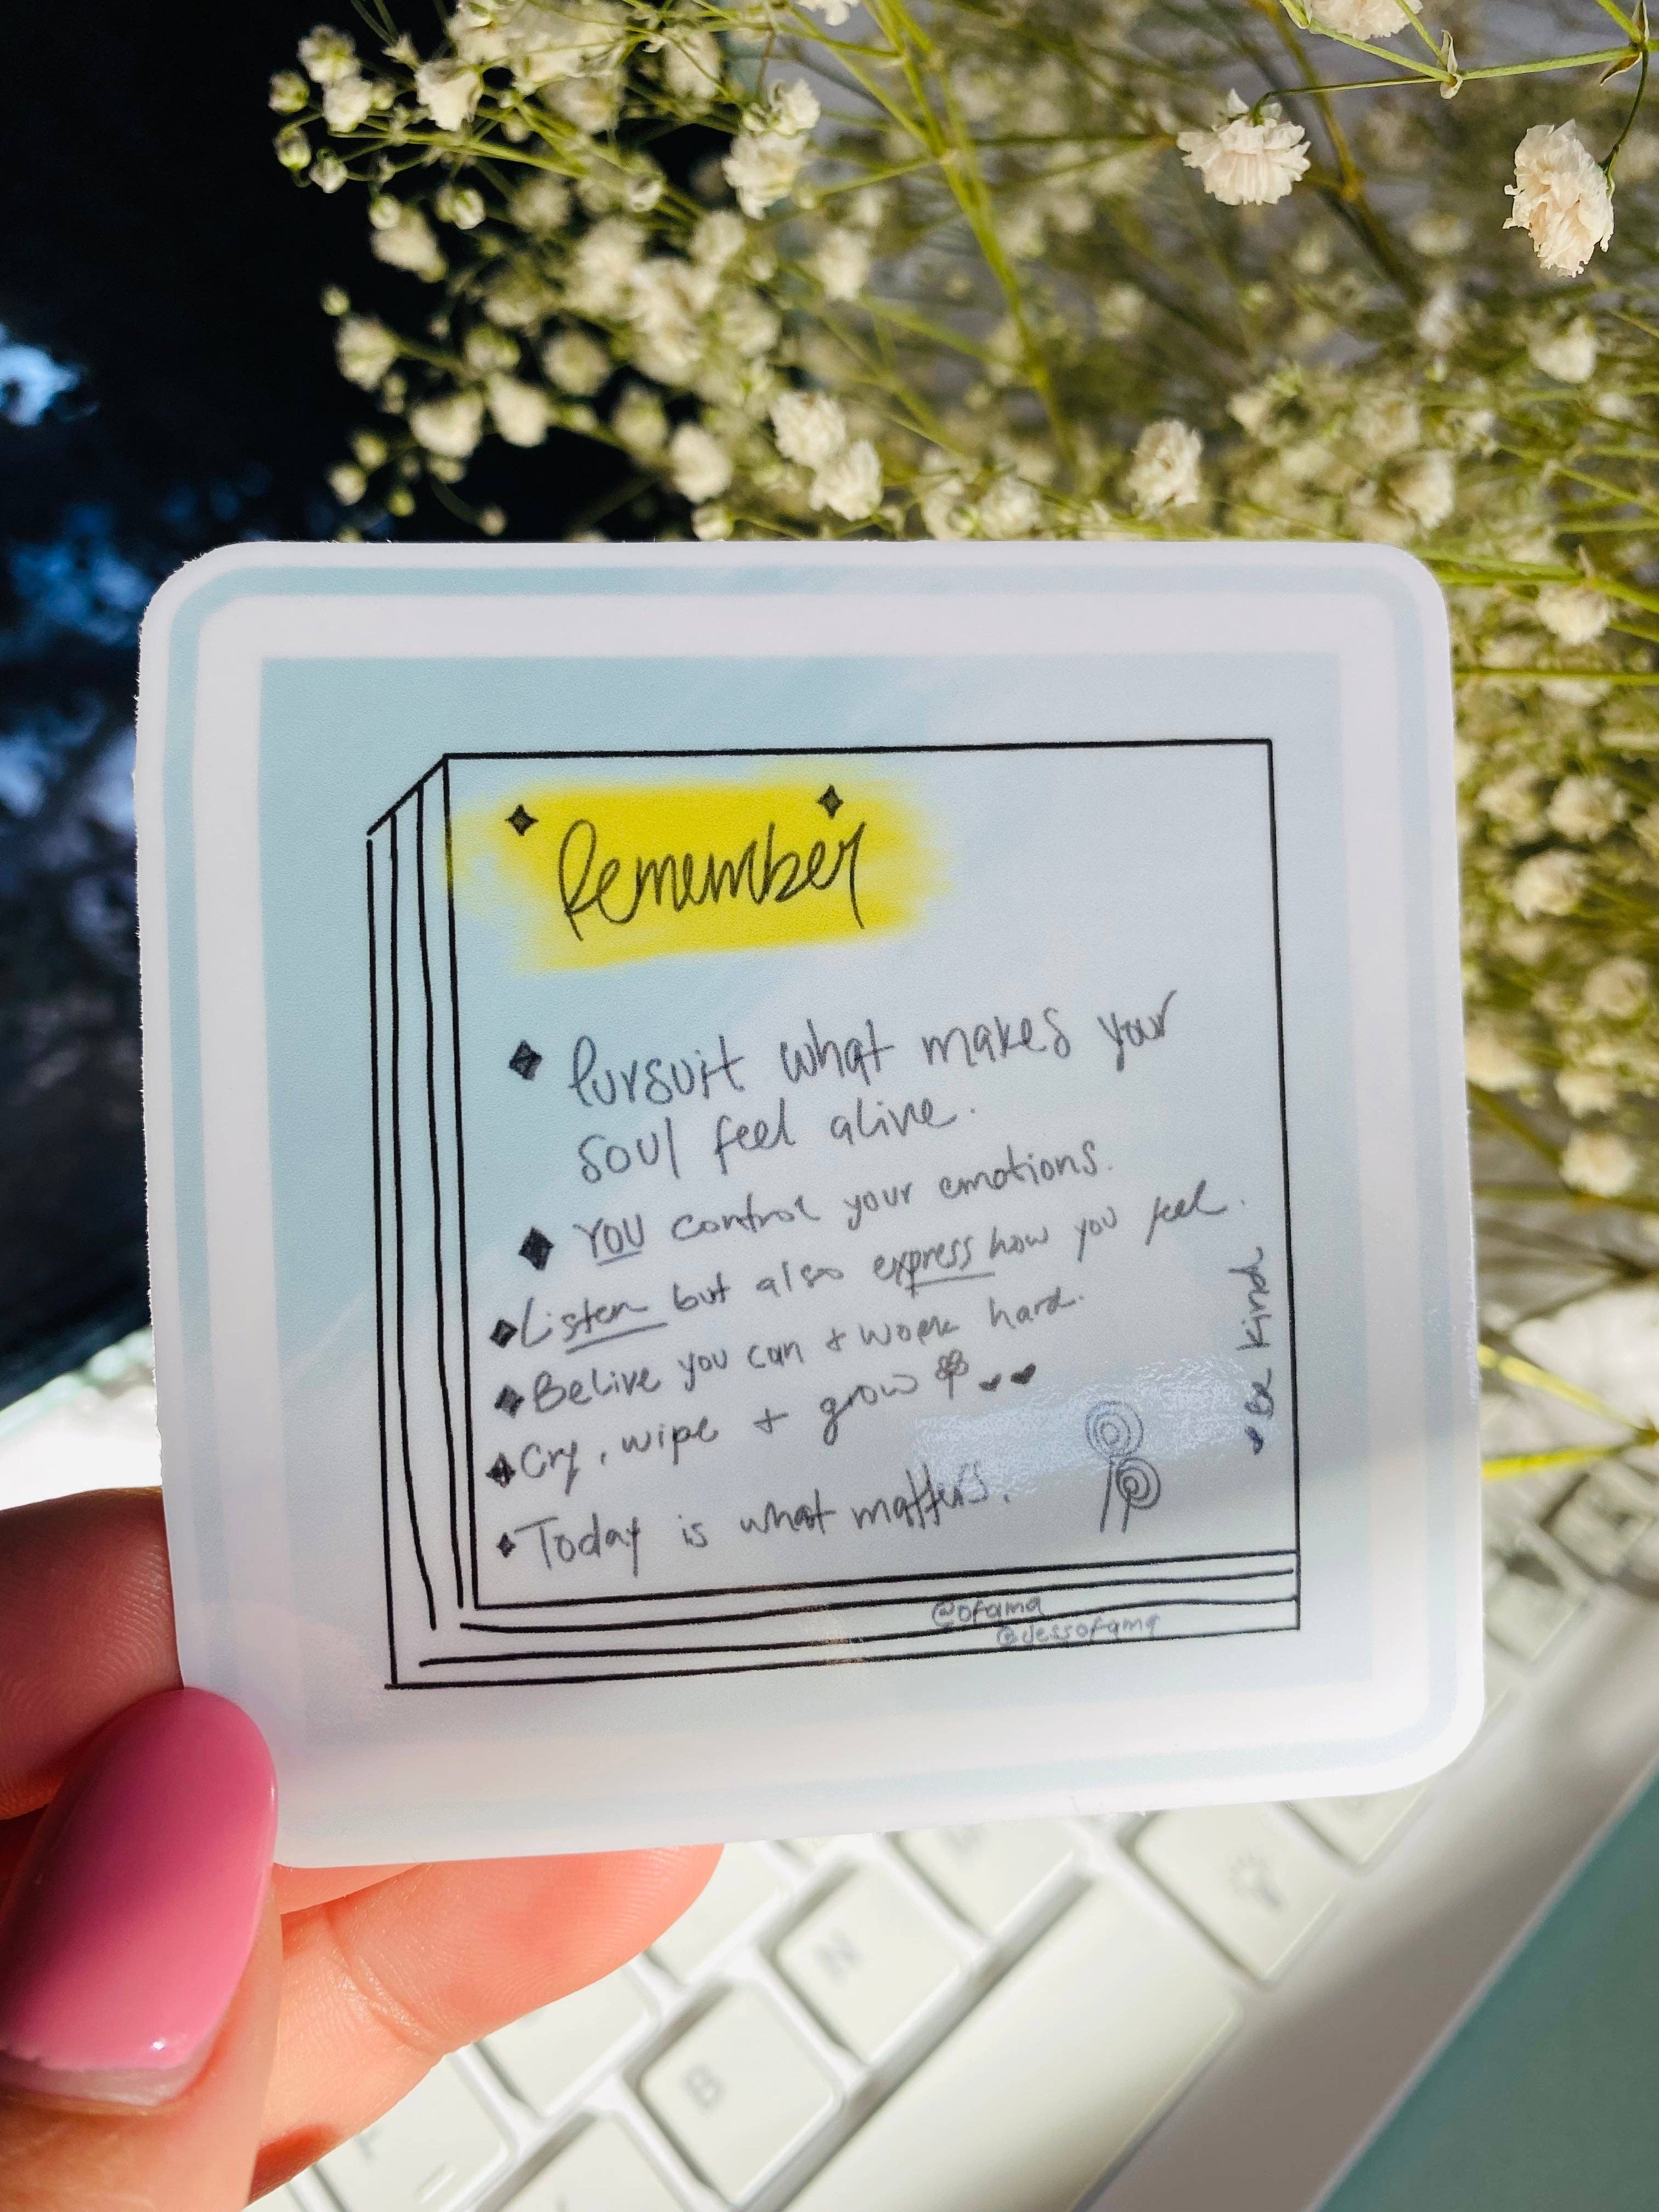 Remember
Pursuit what makes your
soul feel alive.
YOU control your emotions.
Listen but also express how you feel.
Belive you can + work hard.
Cry, wipe + grow
Today is what matters.
Be kind
@ofama
@jessofama
N
B